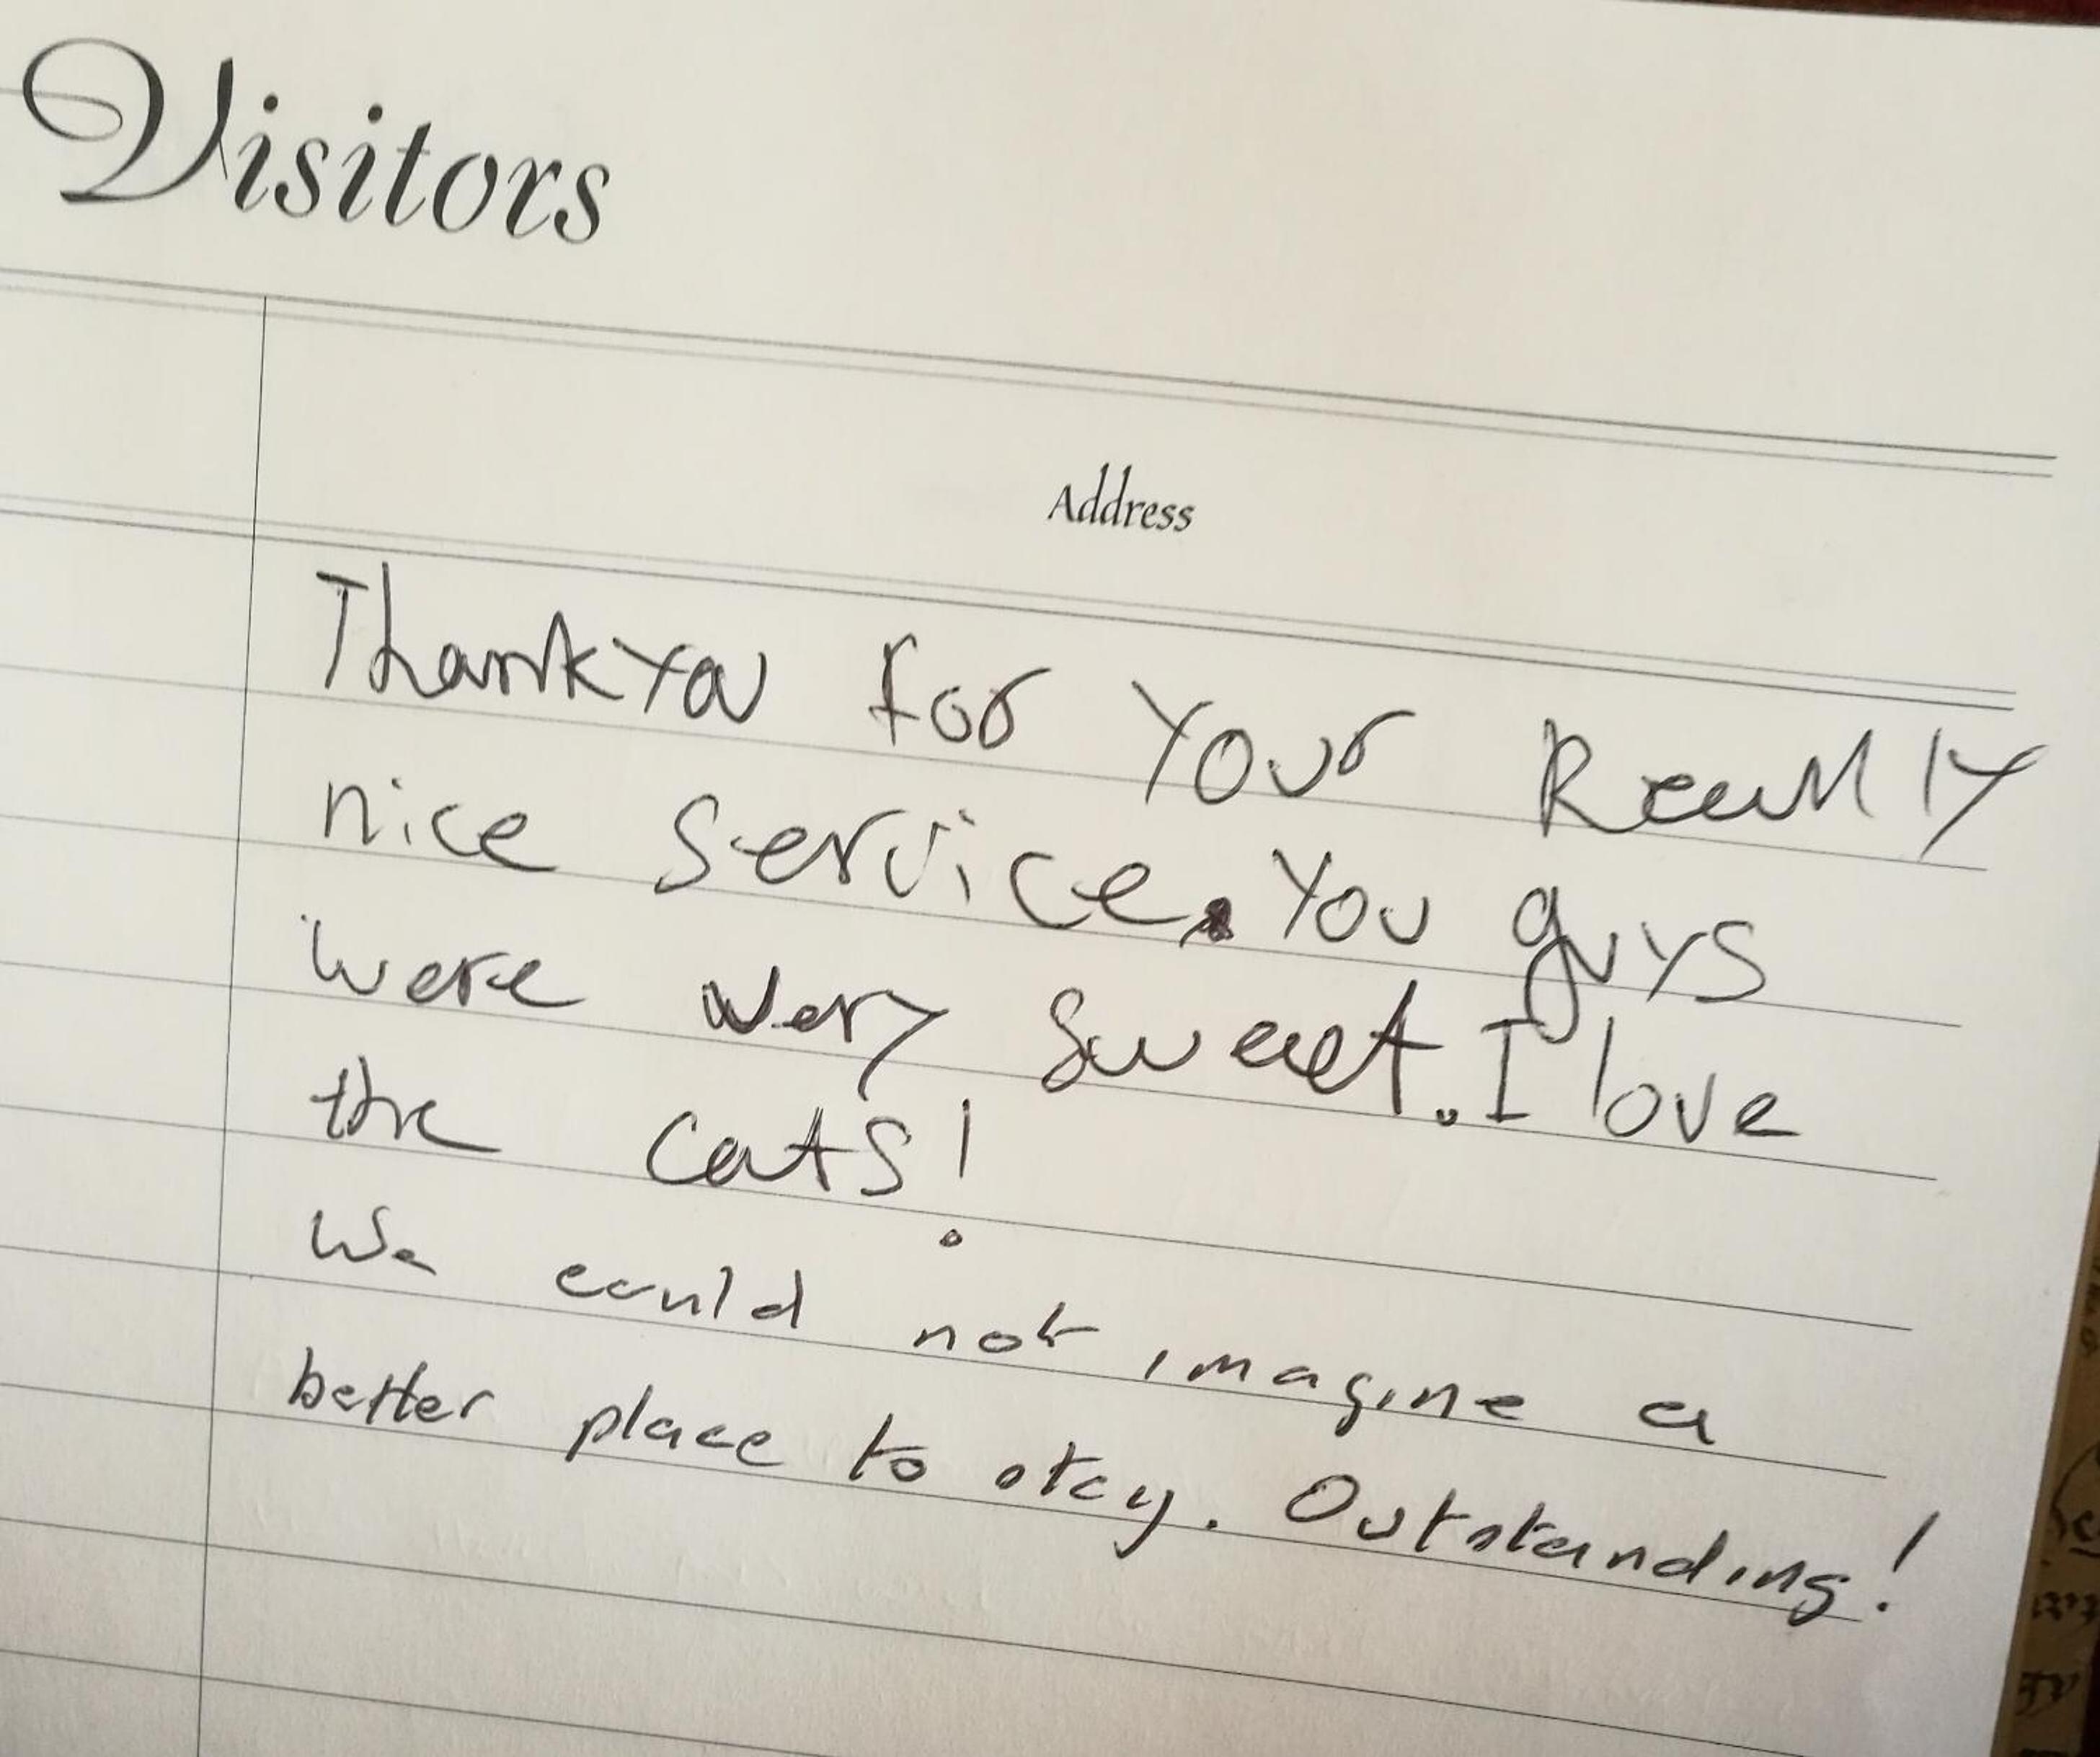 Visitors
Address
Thank you for your Really
nice service. You guys
were very sweet. I love
the cats!
We could not imagine a
better place to stay. Outstanding!